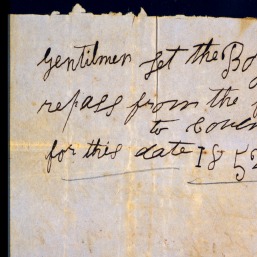 Gentilmen let the Bo
repass from the
to
for this date 1852